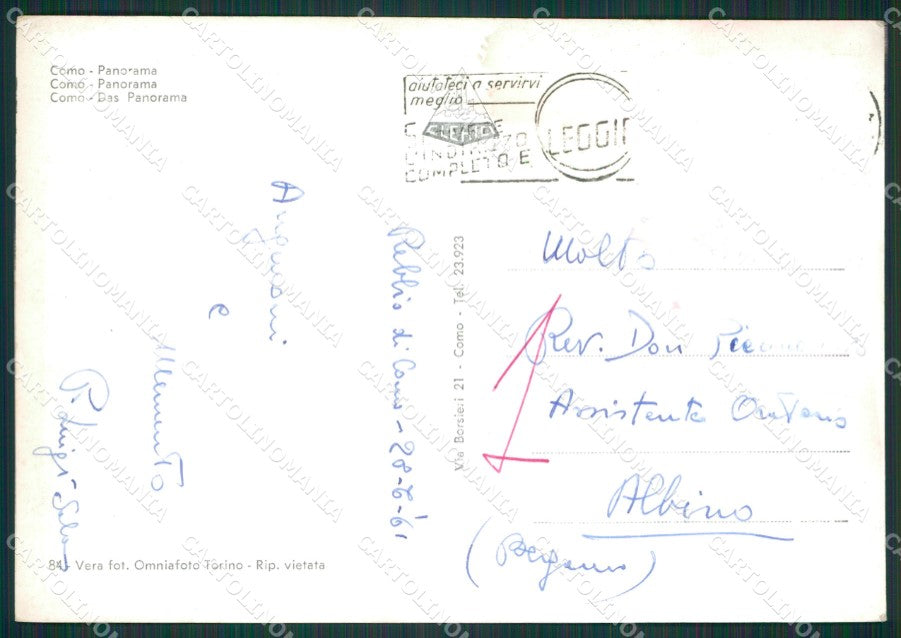 Como - Panorama
Como - Panorama
Como - Das Panorama
aiutateci a servirvi
meglio
COMPLETO E
LEGGI
Auguroni
e
Memento
P. Luigi
Rebbio di Como - 28-6-'61
Via Borsieri 21 - Como - Tel. 23.923
Molto
Rev. Don
Assistente Oratorio
Albino
(Bergamo)
84 - Vera fot. Omniafoto Torino - Rip. vietata
CARTOLINOMANIA